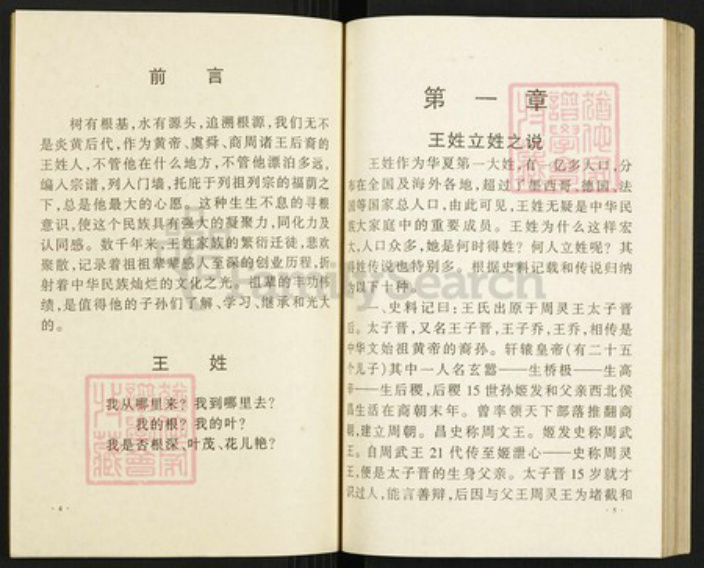 前 言
树有根基,水有源头,追溯根源,我们无不
是炎黄后代,作为黄帝、虞舜、商周诸王后裔的
王姓人,不管他在什么地方,不管他漂泊多远,
编入宗谱,列入门墙,托庇于列祖列宗的福荫之
下,总是他最大的心愿。这种生生不息的寻根
意识,使这个民族具有强大的凝聚力,同化力及
认同感。数千年来,王姓家族的繁衍迁徙,悲欢
聚散,记录着祖祖辈辈感人至深的创业历程,折
射着中华民族灿烂的文化之光。祖辈的丰功伟
绩,是值得他的子孙们了解、学习、继承和光大
的。
王 姓
我从哪里来?我到哪里去?
我的根?我的叶?
我是否根深、叶茂、花儿艳?
·4·
第 一 章
王姓立姓之说
王姓作为华夏第一大姓,有一亿多人口,分
布在全国及海外各地,超过了墨西哥、德国、法
国等国家总人口,由此可见,王姓无疑是中华民
族大家庭中的重要成员。王姓为什么这样宏
大,人口众多,她是何时得姓?何人立姓呢?其
得姓传说也特别多。根据史料记载和传说归纳
为以下十种。
一、史料记曰:王氏出原于周灵王太子晋
后。太子晋,又名王子晋,王子乔,王乔,相传是
中华文始祖黄帝的裔孙。轩辕皇帝(有二十五
个儿子)其中一人名玄嚣——生桥极——生高
辛——生后稷,后稷15世孙姬发和父亲西北侯
昌生活在商朝末年。曾率领天下部落推翻商
朝,建立周朝。昌史称周文王。姬发史称周武
王。自周武王21代传至姬泄心——史称周灵
王,便是太子晋的生身父亲。太子晋15岁就才
识过人,能言善辩,后因与父王周灵王为堵截和
·5·
FamilySearch